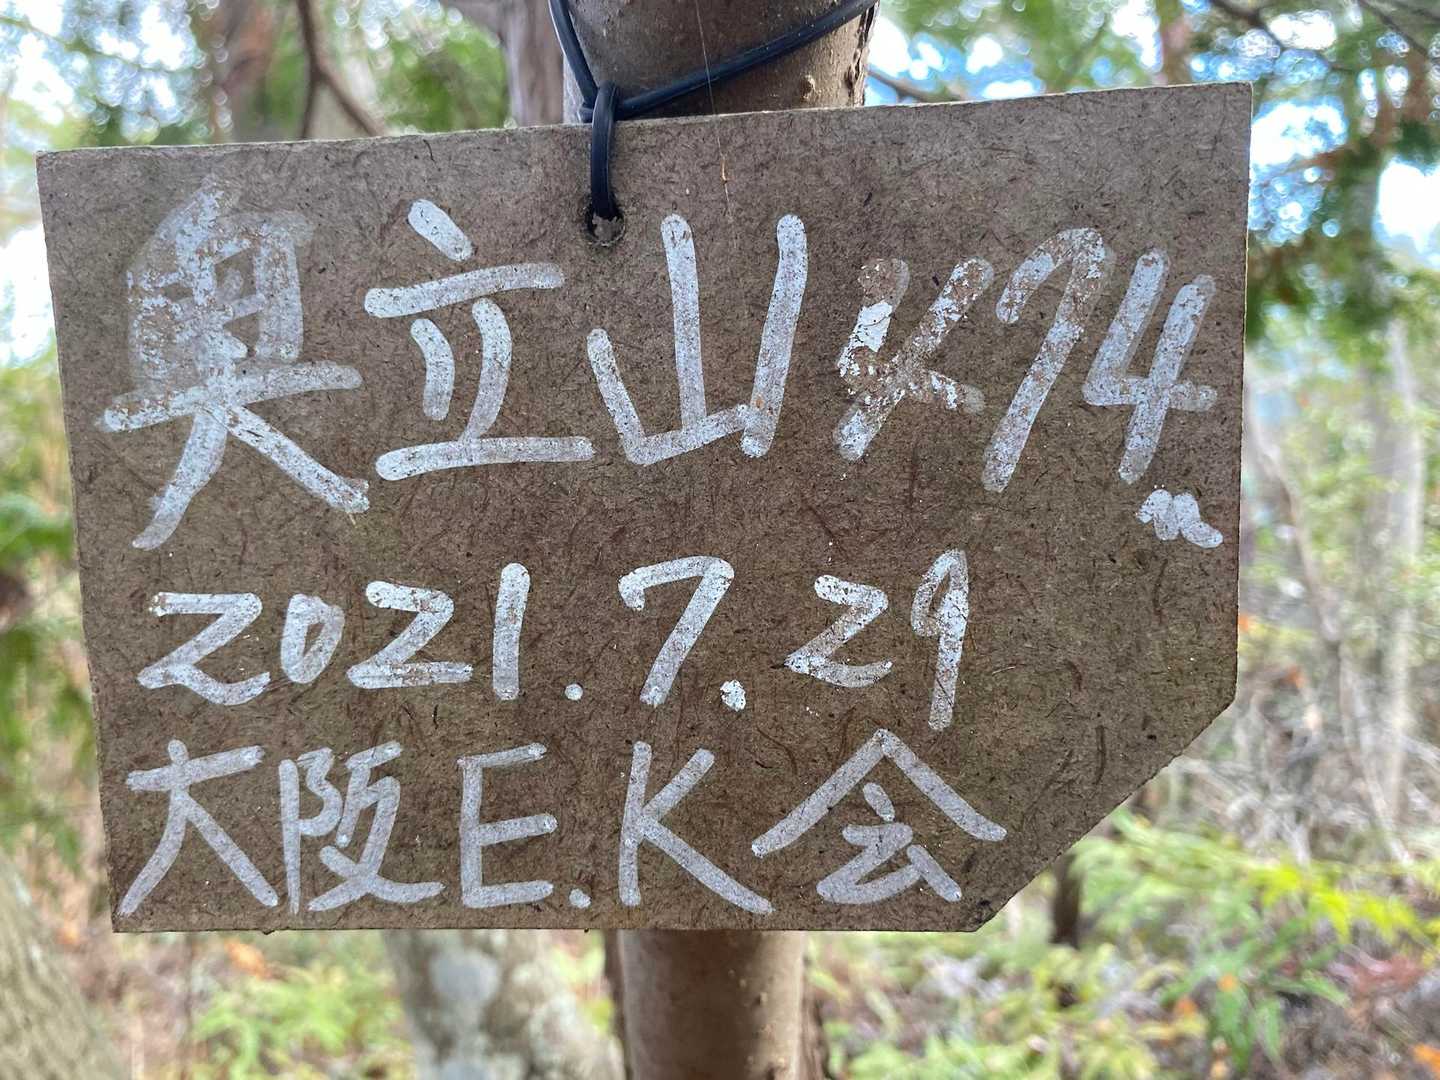 奥立山 474m
2021.7.29
大阪E.K会